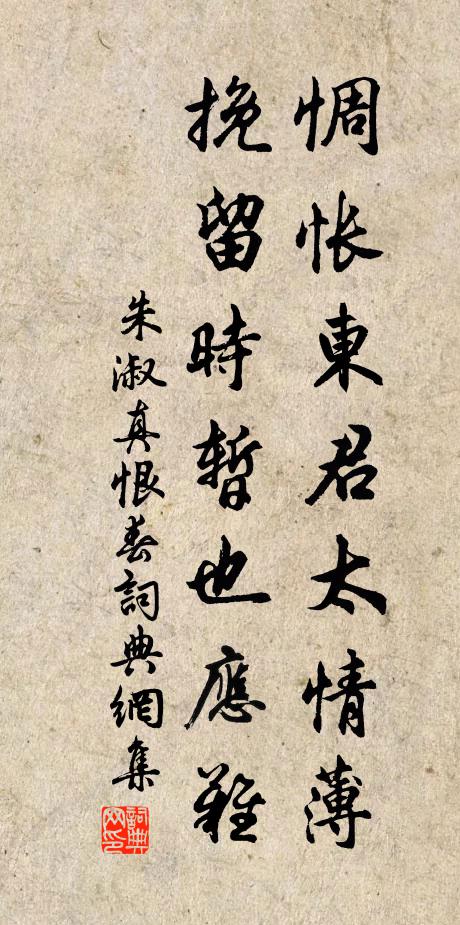 惆悵東君太情薄
挽留時暫也應難
朱淑真恨春詞典網集
詞典网印